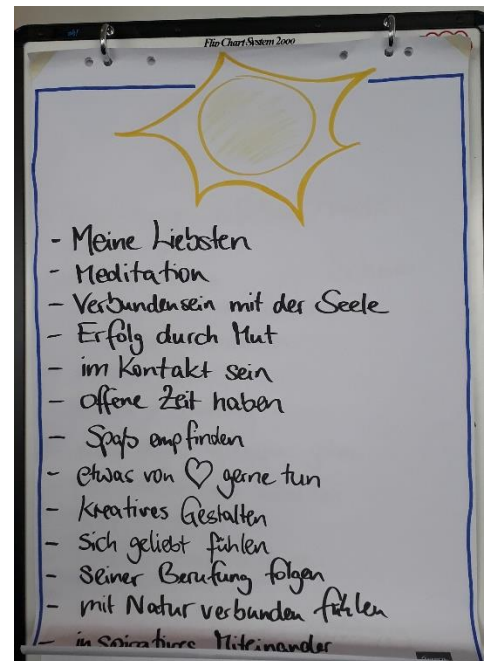 Flip Chart System 2000
- Meine Liebsten
- Meditation
- Verbundensein mit der Seele
- Erfolg durch Mut
- im Kontakt sein
- offene Zeit haben
- Spaß empfinden
- etwas von ♡ gerne tun
- kreatives Gestalten
- Sich geliebt fühlen
- seiner Berufung folgen
- mit Natur verbunden fühlen
- inspiratives Miteinander